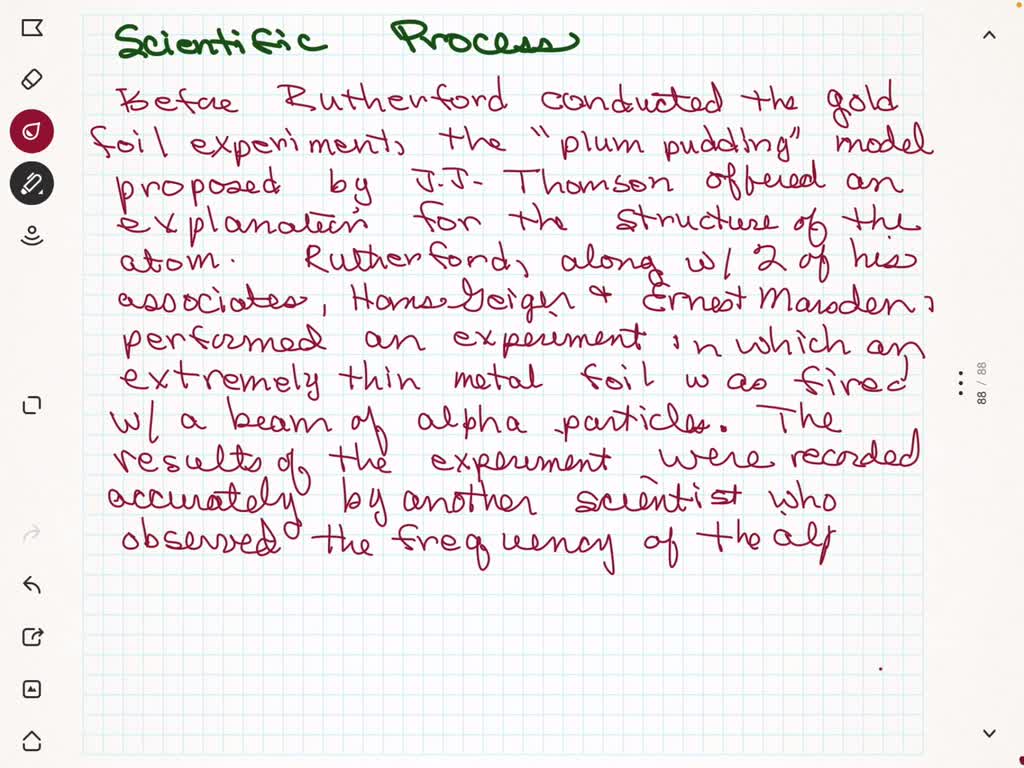 Scientific Process
Before Rutherford conducted the gold
foil experiment, the "plum pudding" model
proposed by J.J. Thomson offered an
explanation for the structure of the
atom. Rutherford, along w/ 2 of his
associates, Hans Geiger & Ernest Marsden,
performed an experiment in which an
extremely thin metal foil was fired
w/ a beam of alpha particles. The
results of the experiment were recorded
accurately by another scientist who
observed the frequency of the alp
88 / 88